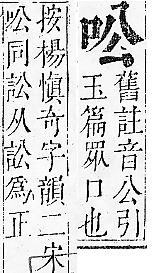 㕬
舊註音公引
玉篇眾口也
按楊愼奇字韻二宋
㕬同訟从訟爲正